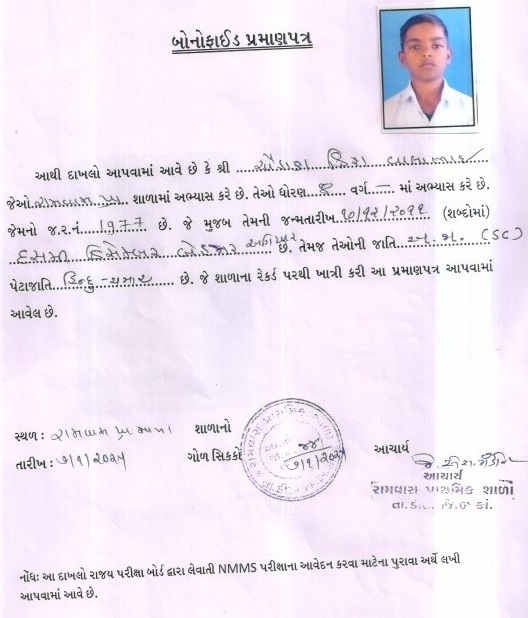 બોનોફાઈડ પ્રમાણપત્ર
આથી દાખલો આપવામાં આવે છે કે શ્રી
જેઓ રામવાસ પ્રા. શાળામાં અભ્યાસ કરે છે. તેઓ ધોરણ ૮ વર્ગ - માં અભ્યાસ કરે છે.
જેમનો જ.ર.નં. 1977 છે. જે મુજબ તેમની જન્મતારીખ ૧૦/૧૨/૨૦૧૧ (શબ્દોમાં)
દસમી ડિસેમ્બર બે હજાર અગિયાર છે. તેમજ તેઓની જાતિ અ.જા. (SC)
પેટાજાતિ હિન્દુ-ચમાર છે. જે શાળાના રેકર્ડ પરથી ખાત્રી કરી આ પ્રમાણપત્ર આપવામાં
આવેલ છે.
સ્થળ : રામવાસ પ્રા. શાળા શાળાનો
તારીખ : ૭/૧/૨૦૨૫ ગોળ સિક્કો ૭/૧/૨૦૨૫ આચાર્ય
આચાર્ય
રામવાસ પ્રાથમિક શાળા
નોંધઃ આ દાખલો રાજ્ય પરીક્ષા બોર્ડ દ્વારા લેવાતી NMMS પરીક્ષાના આવેદન કરવા માટેના પુરાવા અર્થે લખી
આપવામાં આવે છે.